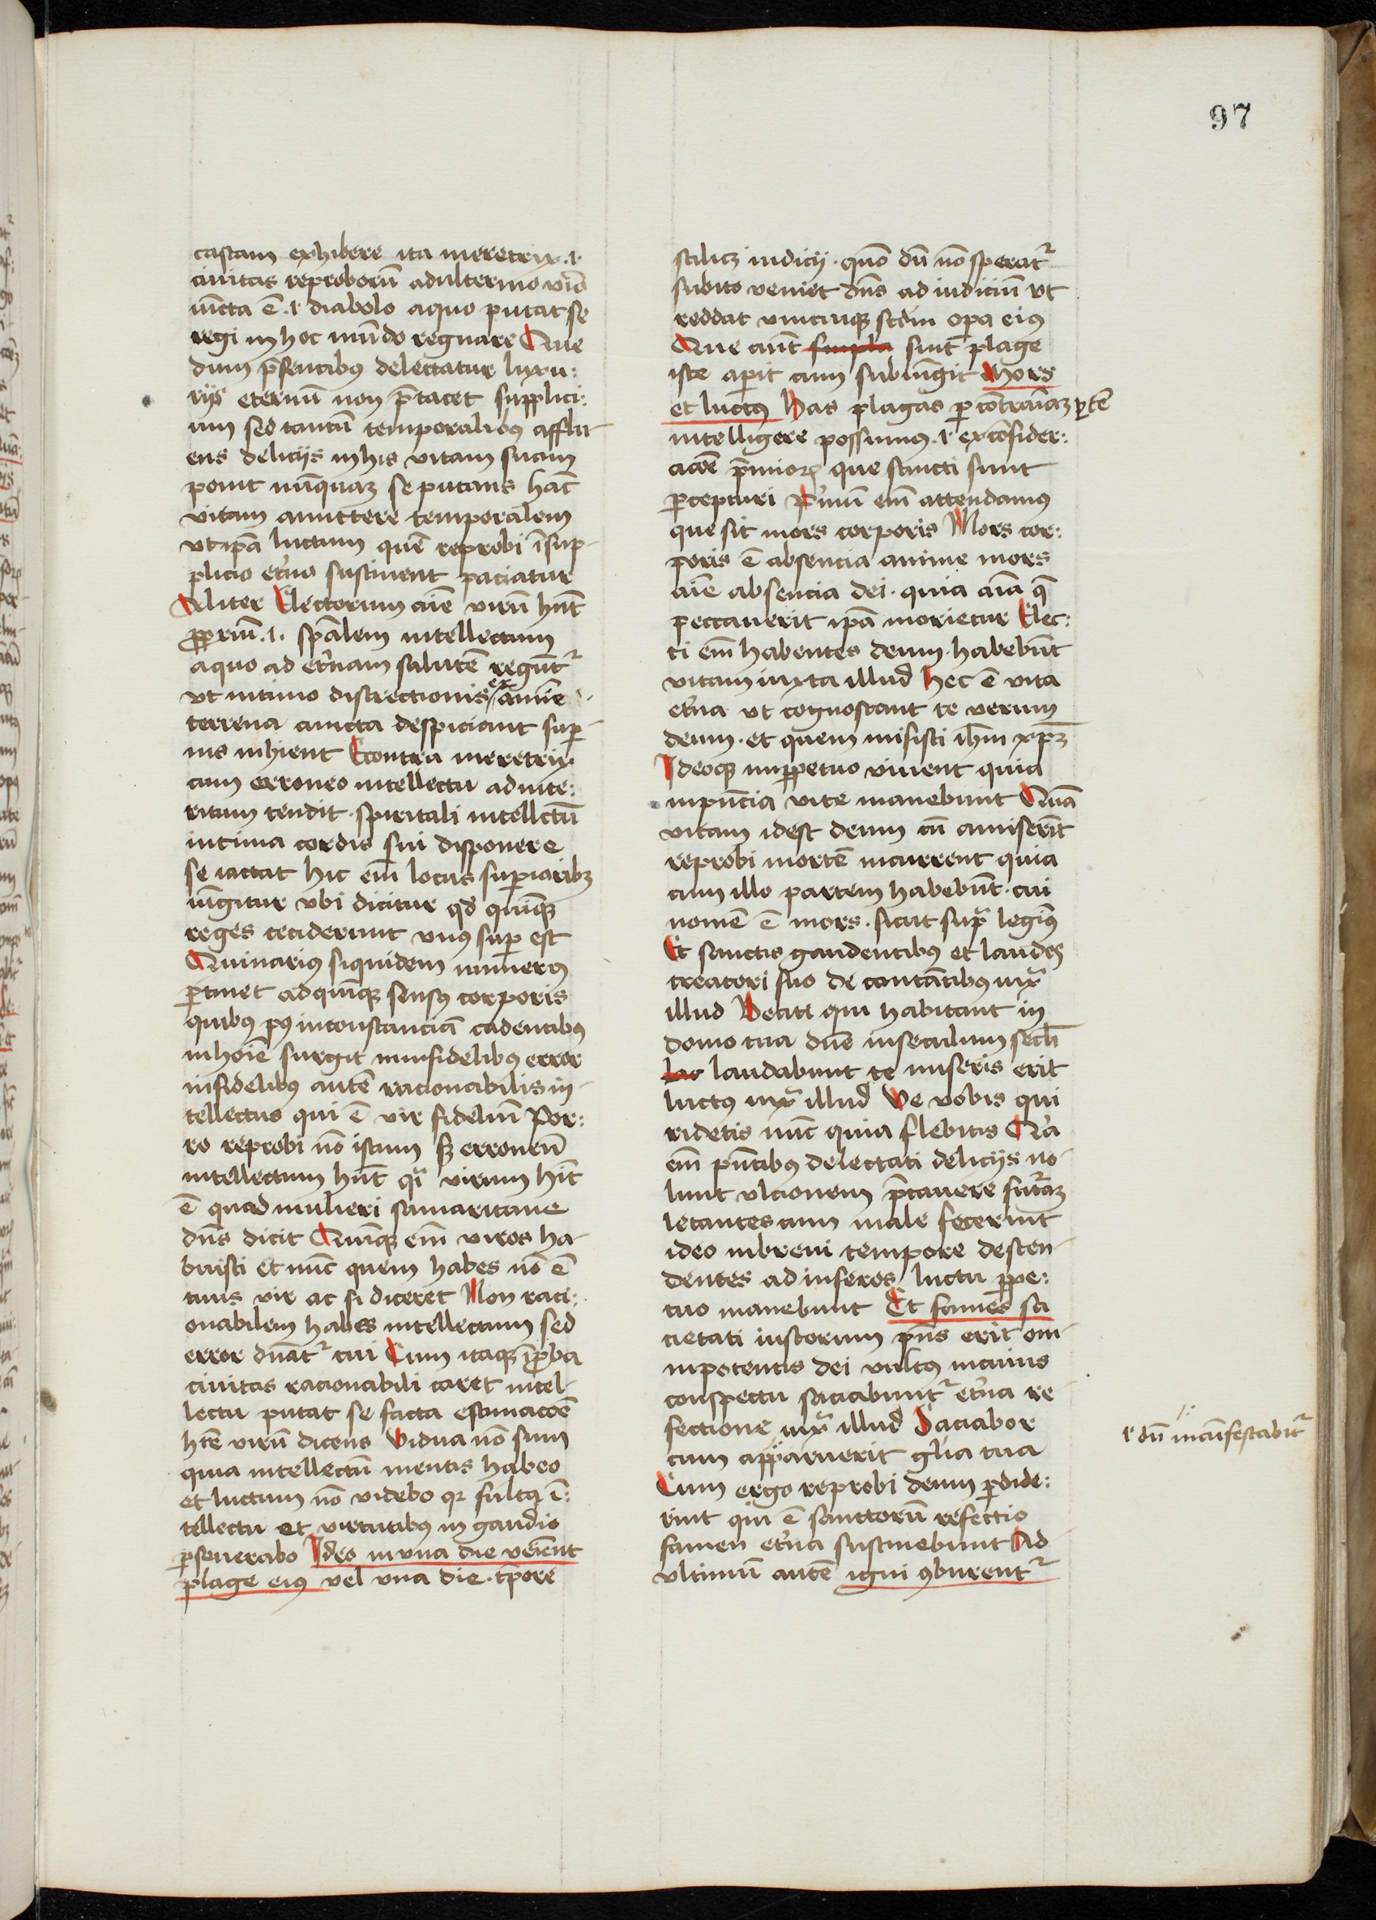 97
castam exhibere ita meretrix .i.
ciuitas reproborū adulterino viro
iūcta ē .i. diabolo aquo putat se
regi in hoc mūdo regnare Que
dum p̄sentibus delectatur luxu:
rijs eternū non p̄cacet supplici:
um sed tantū temporalibus afflu-
ens delicijs in his vitam suam
ponit nūquaꝫ se putans hāc
vitam amittere temporalem
vt ip̄a luctum quē reprobi ī sup-
plicio et̓no sustinent paciatur
Aliter Electorum aīe virū hn̄t
ꝓprium .i. sp̄alem intellectum
aquo ad et̓nam salutē regūt᷑
vt intimo discrectionis ex amīe
terrena cuncta despiciant sup̱
nis inhient Econtra meretrix
cum erroneo intellectu ad inte:
ritum tendit · spiritali intellectū
intima cordis sui disponere
se iactat hic em̄ locus sup̱ioribꝫ
iūgitur vbi dicitur qd̓ quinqꝫ
reges ceciderunt vnus sup̱ est
Quinarius siquidem numerus
p̱tinet ad quinqꝫ sensus corporis
quibus pꝰ inconstanciā cadentibus
in hoīe surgit in infidelibus error
in fidelibus autē racionabilis in-
tellectus qui ē vir fideliū Por:
ro reprobi nō istum sꝫ erroneū
intellectum hn̄t qͣ virum hīc
ē quod mulieri samaritane
dn̄s dicit Quinqꝫ em̄ viros ha-
buisti et nūc quem habes nō ē
tuus vir ac si diceret Non raci:
onabilem habes intellectum sed
error dn̄at᷑ tui Cum itaqꝫ īproba
ciuitas racionabili caret intel-
lectu putat se facta estimacōe
hr̄e virū dicens Vidua nō sum
quia intellectū mentis habeo
et luctum nō videbo qꝛ fultꝰ ī:
tellectu et virtutibus in gaudio
p̱seuerabo Ideo in vna die veīent
plage eius vel vna die · tp̄ore
scilicꝫ iudicij · quō dū nō sperat᷑
subito veniet dn̄s ad iudiciū vt
reddat vnicuiqꝫ scd̄m opa eius
Que aūt simpla sint plage
iste ap̱it cum subiūgit Mors
et luctus Has plagas p̱ cōtrariaꝫ p̱tē
intelligere possumus .i. ex consider:
acōe p̄mioꝝ que sancti sunt
p̱cepturi Pimū em̄ attendamus
que sit mors corporis Mors cor:
poris ē absencia anime mors
aīe absencia dei · quia aīa q̄
peccauerit ip̄a morietur Elec:
ti em̄ habentes deum · habebūt
vitam iuxta illud Hec ē vita
et̓na vt cognoscant te verum
deum · et quem misisti ih̄m xp̄ꝫ
Ideoqꝫ inꝑpetuo viuent quia
inpn̄cia vite manebunt Quā
vitam idest deum cū amiserīt
reprobi mortē incurrent quia
cum illo partem habebūt · cui
nomē ē mors · sicut supͣ legimꝰ
Et sanctis gaudentibus et laudes
creatori suo de cantātibus iuxͣ
illud Beati qui habitant in
domo tua dn̄e in seculum secl̄i
hoc laudabunt te miseris erit
luctus iuxͣ illud Ve vobis qui
ridetis nūc quia flebitis Qa
em̄ pn̄tibus delectati delicijs no-
lunt vlcionem p̄cauere futuraꝫ
letantes cum male fecerint
ideo in breui tempore descen-
dentes ad inferos luctu ꝑpe:
tuo manebunt Et fames sa
cietati iustorum pn̄s erit om-
nipotentis dei vultus in cuius
conspectu saciabunt᷑ et̓na re-
fectione iuxͣ illud Saciabor
cum apparuerit gl̄ia tua
Cum ergo reprobi deum p̱dide:
rint qui ē sanctorū refectio
famen et̓na sustinebunt Ad
vltimū autē igni ꝯburent᷑
.i. dū māifestabit᷑